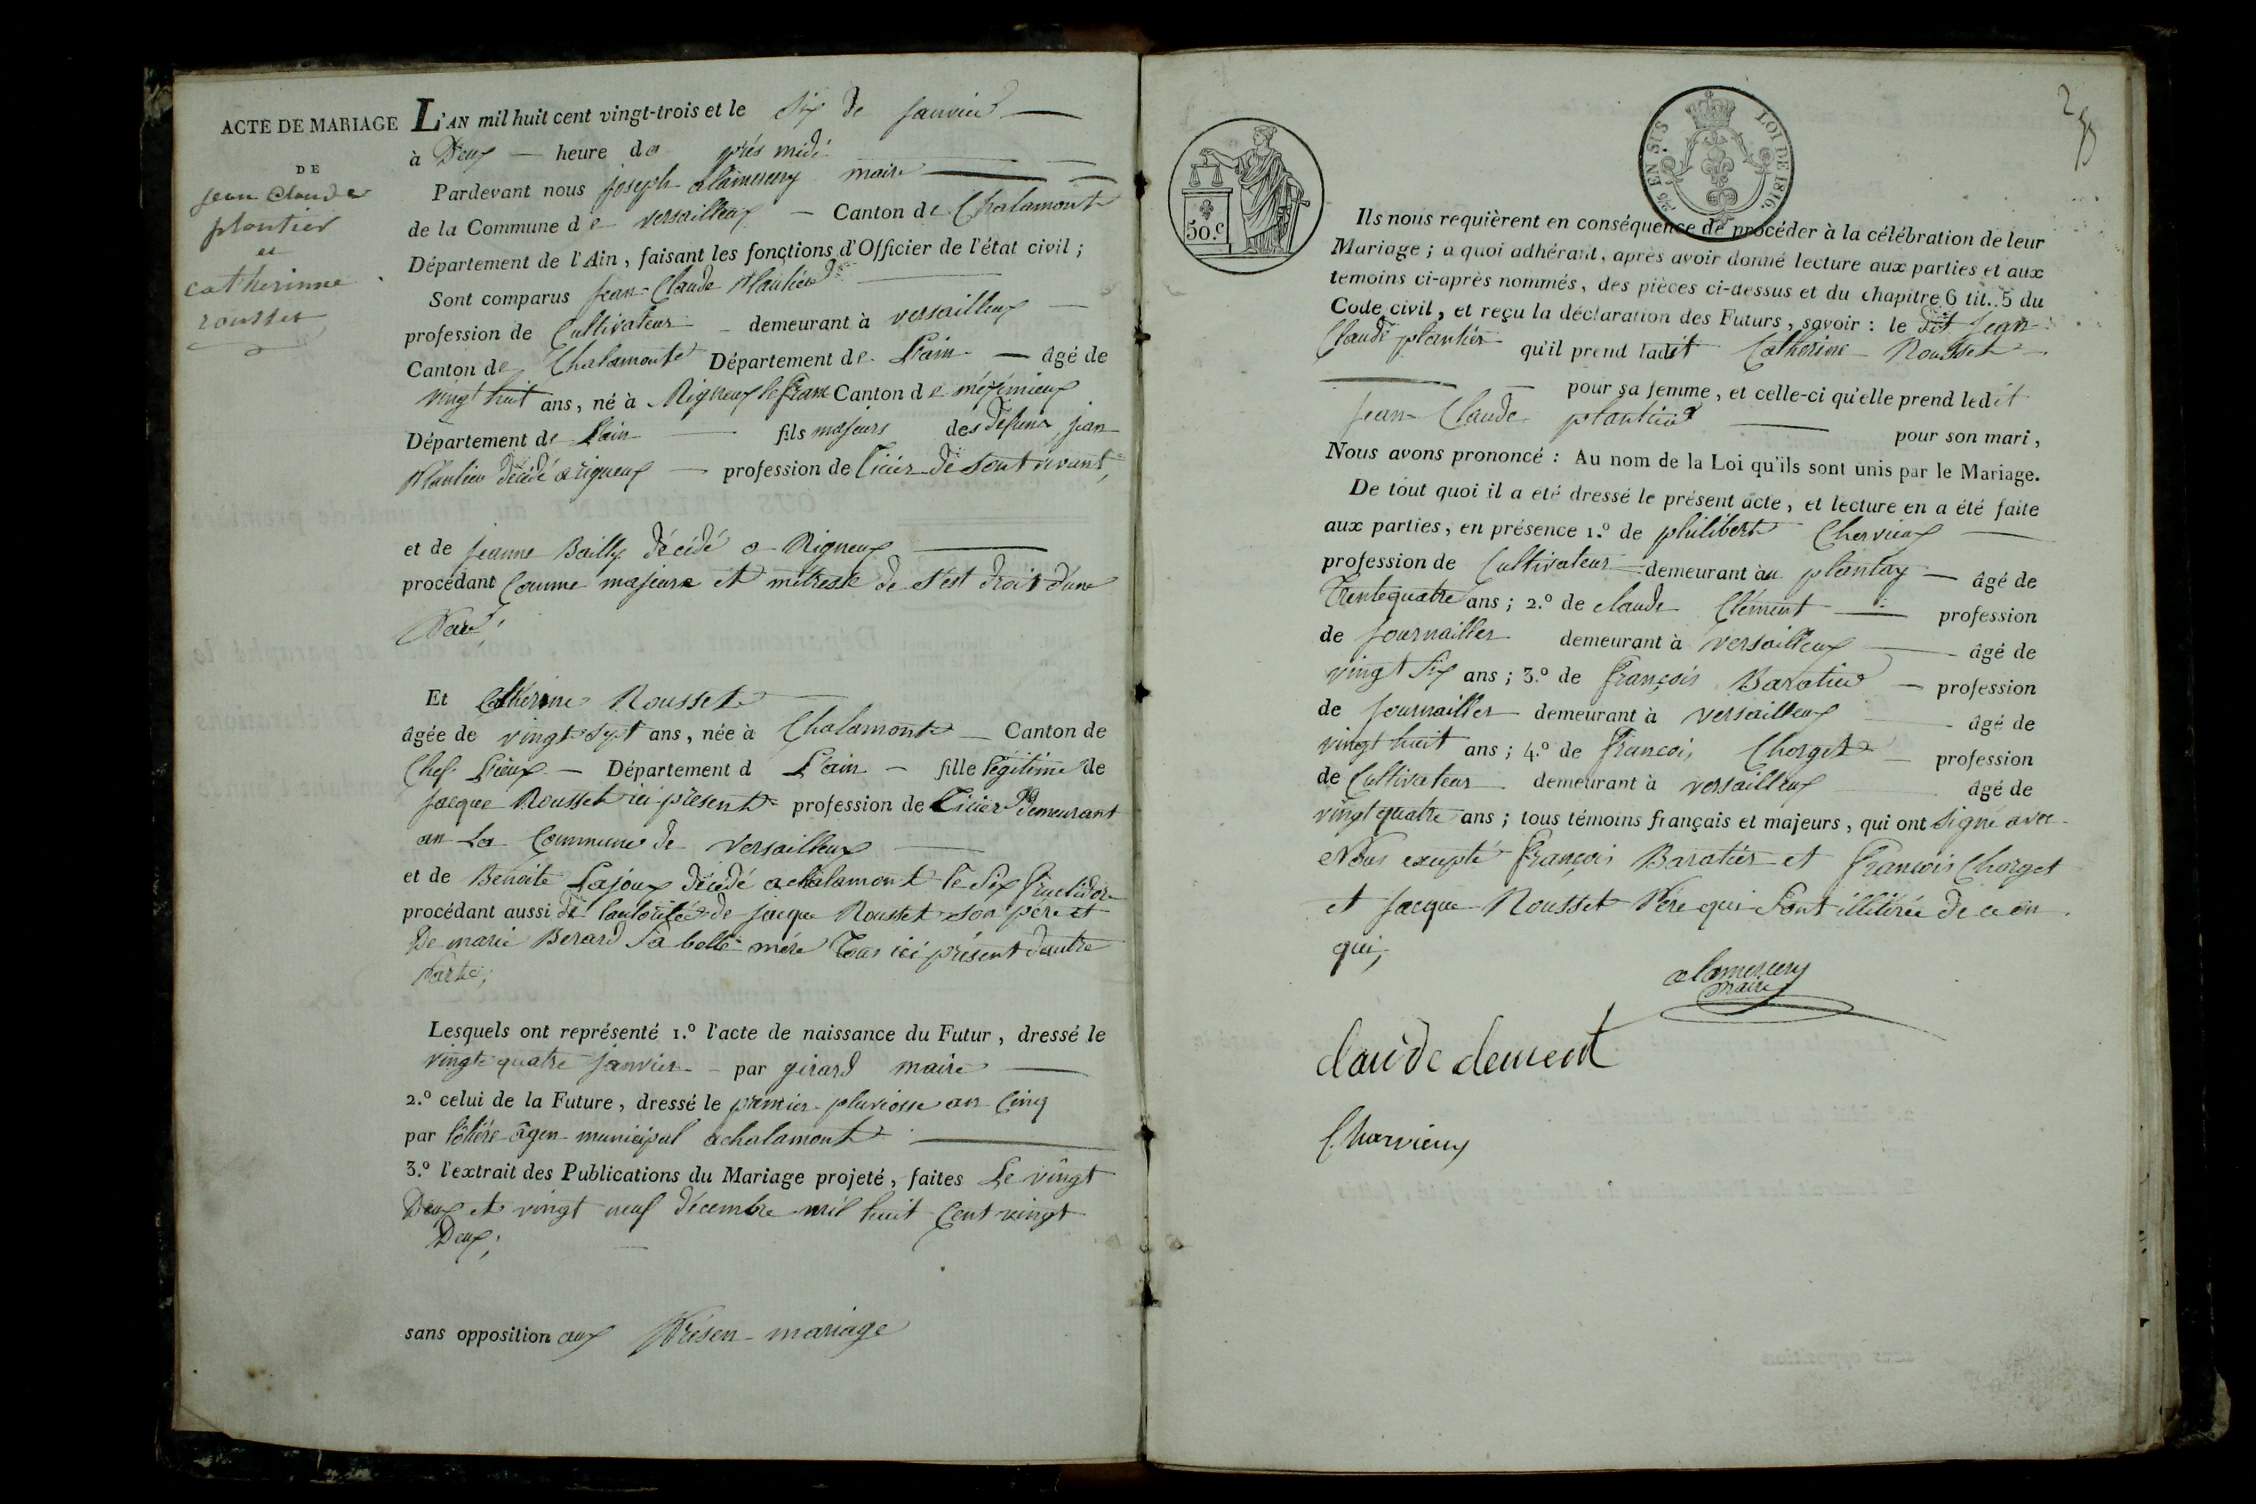 ACTE DE MARIAGE
DE
jean Claude
plantier
et
catherinne
rousset
L'AN mil huit cent vingt-trois et le Six de janvier
à Deux heure da prés midi
Pardevant nous joseph alamercery maire
de la Commune de versailleux Canton de Chalamont
Département de l'Ain, faisant les fonctions d'Officier de l'état civil;
Sont comparus Jean-Claude Plantier
profession de Cultivateur demeurant à versailleux
Canton de Chalamont Département de Lain âgé de
vingt huit ans, né à Rigneux le franc Canton de méximieux
Département de Lain fils majeurs des défunt jean
Plantier décédé a rigneux profession de de sont vivant,
et de jeanne Bailly décédé a Rigneux
procédant Comme majeure et métresse de s'est droit d'une
Part;
Et Catherine Rousset
âgée de vingt-sept ans, née à Chalamont Canton de
Chef Lieux Département d Lain fille légitime de
jacque Rousset ici présent profession de Demeurant
an La Commune de versailleux
et de Benoite Lajoux décédé a chalamont le Six fructidor
procédant aussi de Lautoritée de jacque Rousset son pére et
De marie Berard Sa belle mére Tous ici présent dautre
Parte;
Lesquels ont représenté 1.º l'acte de naissance du Futur, dressé le
vingt quatre janvier par girard maire
2.º celui de la Future, dressé le premier pluviosse an Cinq
par agen municipal achalamont
3.º l'extrait des Publications du Mariage projeté, faites Le vingt
Deux et vingt neuf décembre mil huit Cent vingt
Deux;
sans opposition aux Présen mariage
50.C
25 EN SUS
LOI DE 1816.
2
Ils nous requièrent en conséquence de procéder à la célébration de leur
Mariage; à quoi adhérant, après avoir donné lecture aux parties et aux
temoins ci-après nommés, des pièces ci-dessus et du chapitre 6 tit. 5 du
Code civil, et reçu la déclaration des Futurs, savoir: le dit Jean
Claude plantier qu'il prend ladit Catherine Rousset
pour sa femme, et celle-ci qu'elle prend ledit
Jean-Claude plantier pour son mari,
Nous avons prononcé: Au nom de la Loi qu'ils sont unis par le Mariage.
De tout quoi il a été dressé le présent acte, et lecture en a été faite
aux parties, en présence 1.º de philibert Chervieux
profession de Cultivateur demeurant au plantay âgé de
Trentequatre ans; 2.º de claude Clément profession
de journallier demeurant à versailleux âgé de
vingt Six ans; 3.º de françois Baratier profession
de journallier demeurant à versailleux âgé de
vingt huit ans; 4.º de françois Chorget profession
de Cultivateur demeurant à versailleux âgé de
vingt quatre ans; tous témoins français et majeurs, qui ont signé avec
Nous excepté françois Baratier et françois Chorget
et jacque Rousset Pére qui Sont illitirée de ce en
qui,
alamercery
maire
claude clement
Charvieux